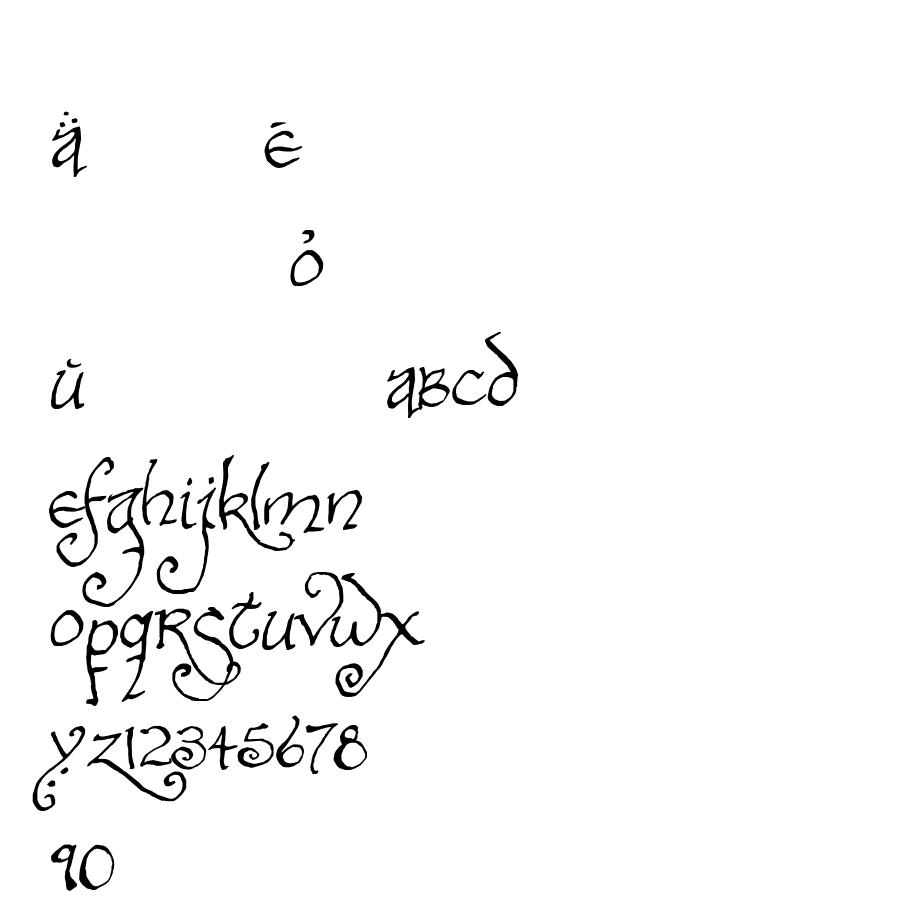 ä̇ ē
ỏ
ŭ abcd
efghijklmn
opqrstuvwx
yz12345678
90